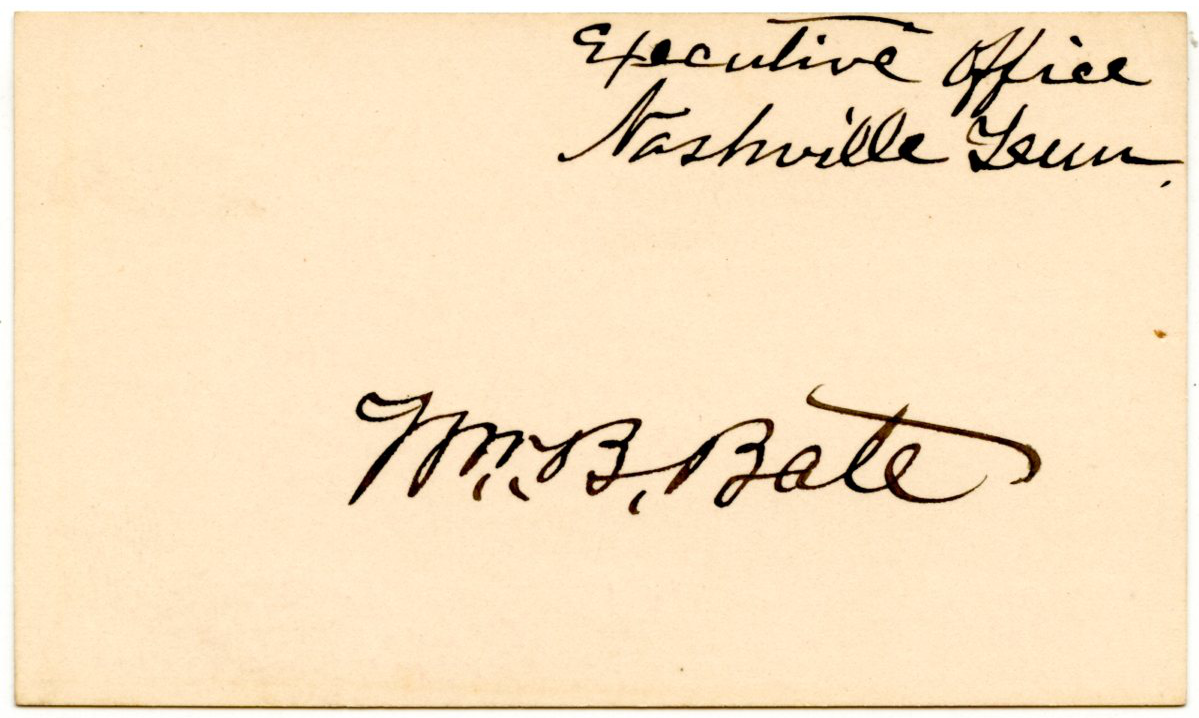 Executive Office
Nashville Tenn.
Wm. B. Bate